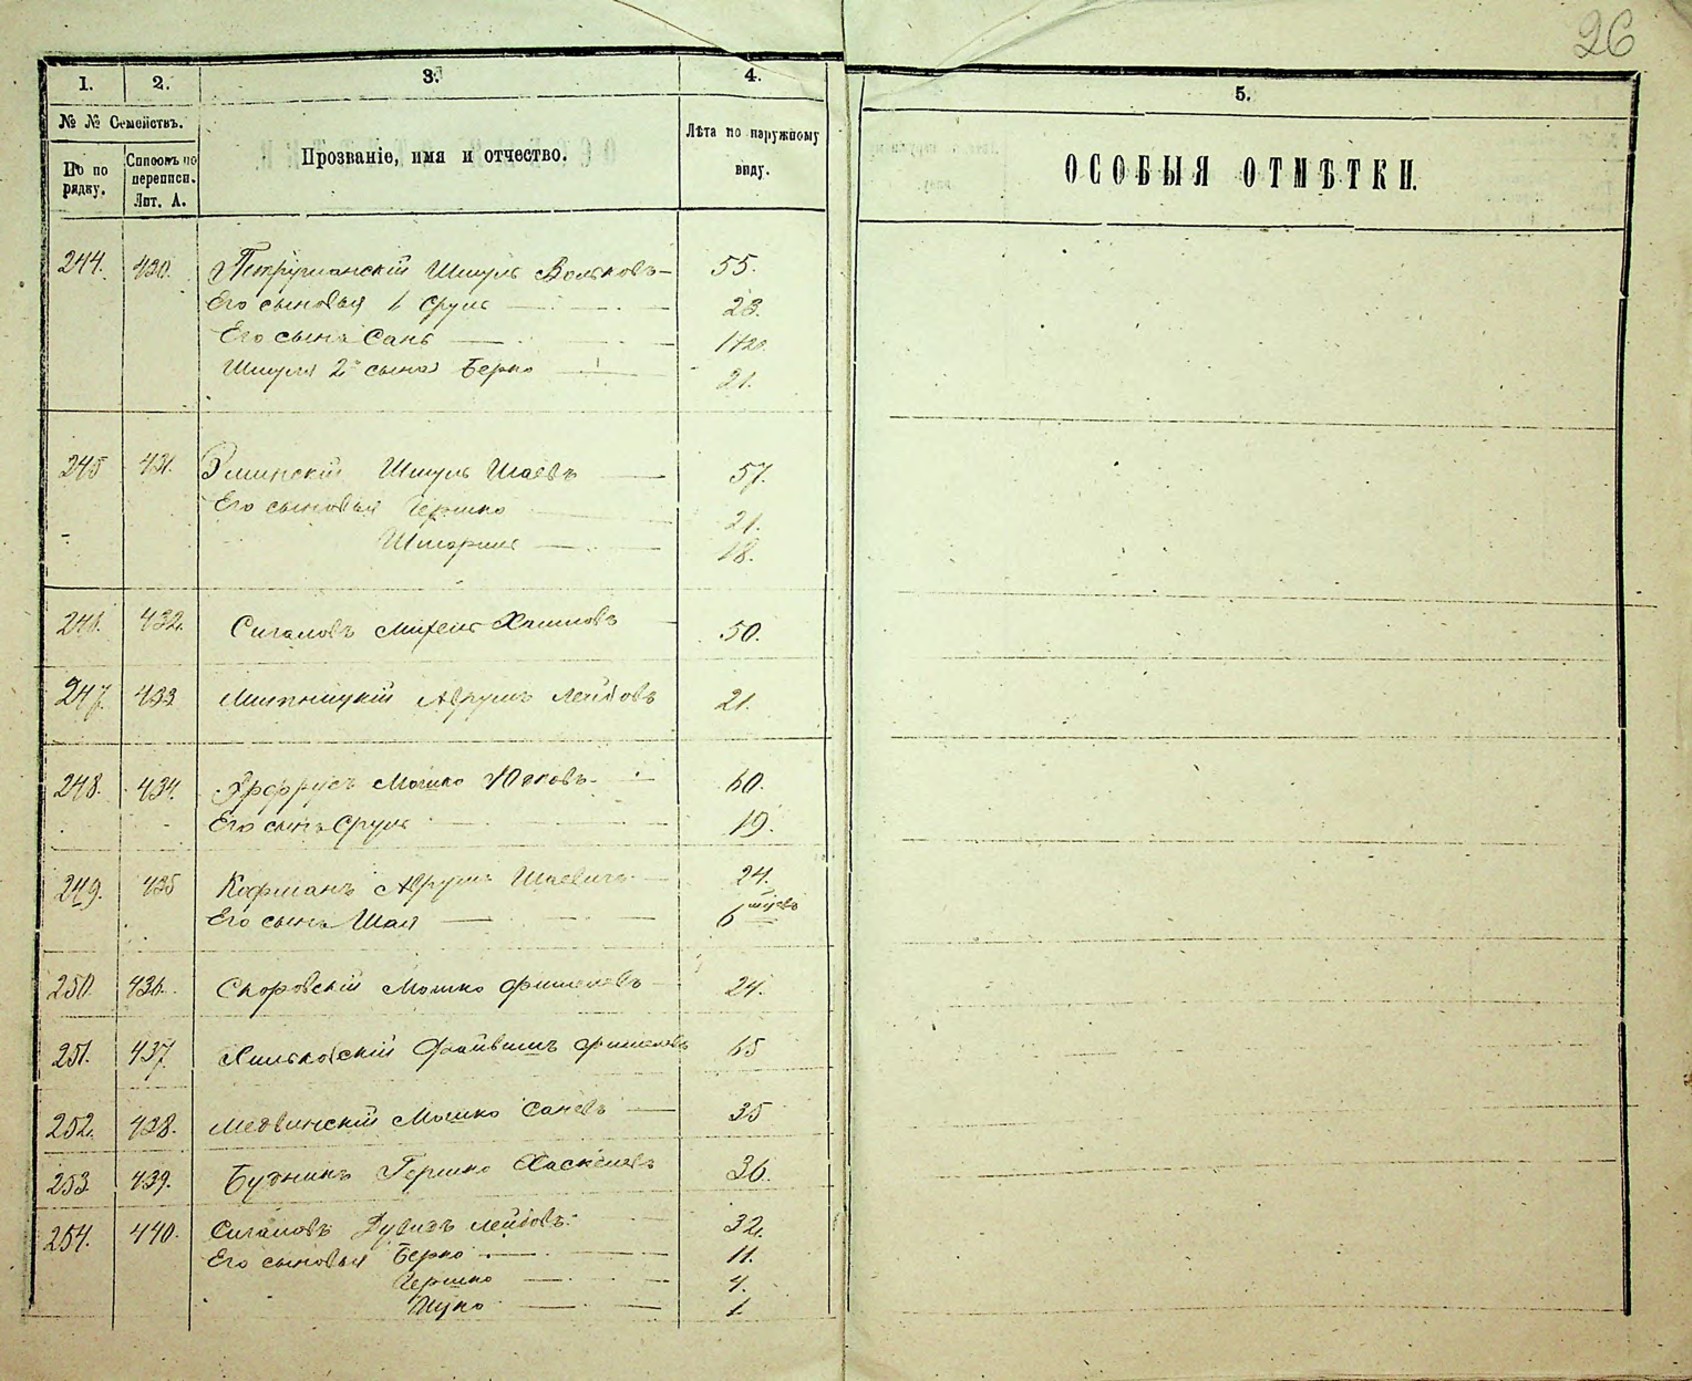 26
1. 2. 3. 4. 5.
№ № Семействъ.
По по рядку.
Списокъ по переписи. Лит. А.
Прозваніе, имя и отчество.
Лѣта по наружному виду.
ОСОБЫЯ ОТМѢТКИ.
244. 430. Шмуль Вольковъ 55.
Его сыновья 1 Сруль 23.
Его сынъ Сань
Шмуля 2й сынъ Берко 21.
245 431. Шмуль Шаевъ 57.
Его сыновья Гершко 21.
18.
246. 432. Сигаловъ Михель Хаимовъ 50.
247. 433 Аврумъ Лейбовъ 21.
248. 434. Мошко 60.
Его сынъ Сруль 19.
249. 435 Кофманъ Аврумъ Шаевичъ 24.
Его сынъ Шая 6 мцевъ
250. 436. Скоровскій Мошко Фишелевъ 24.
251. 437. Файвишъ Фишелевъ 65
252. 438. Медвинскій Мошко Саневъ 35
253 439. Будникъ Гершко Хаскелевъ 36.
254. 440. Сигаловъ Дувидъ Лейбовъ 32.
Его сыновья Берко 11.
Гершко 4.
Ицко 1.